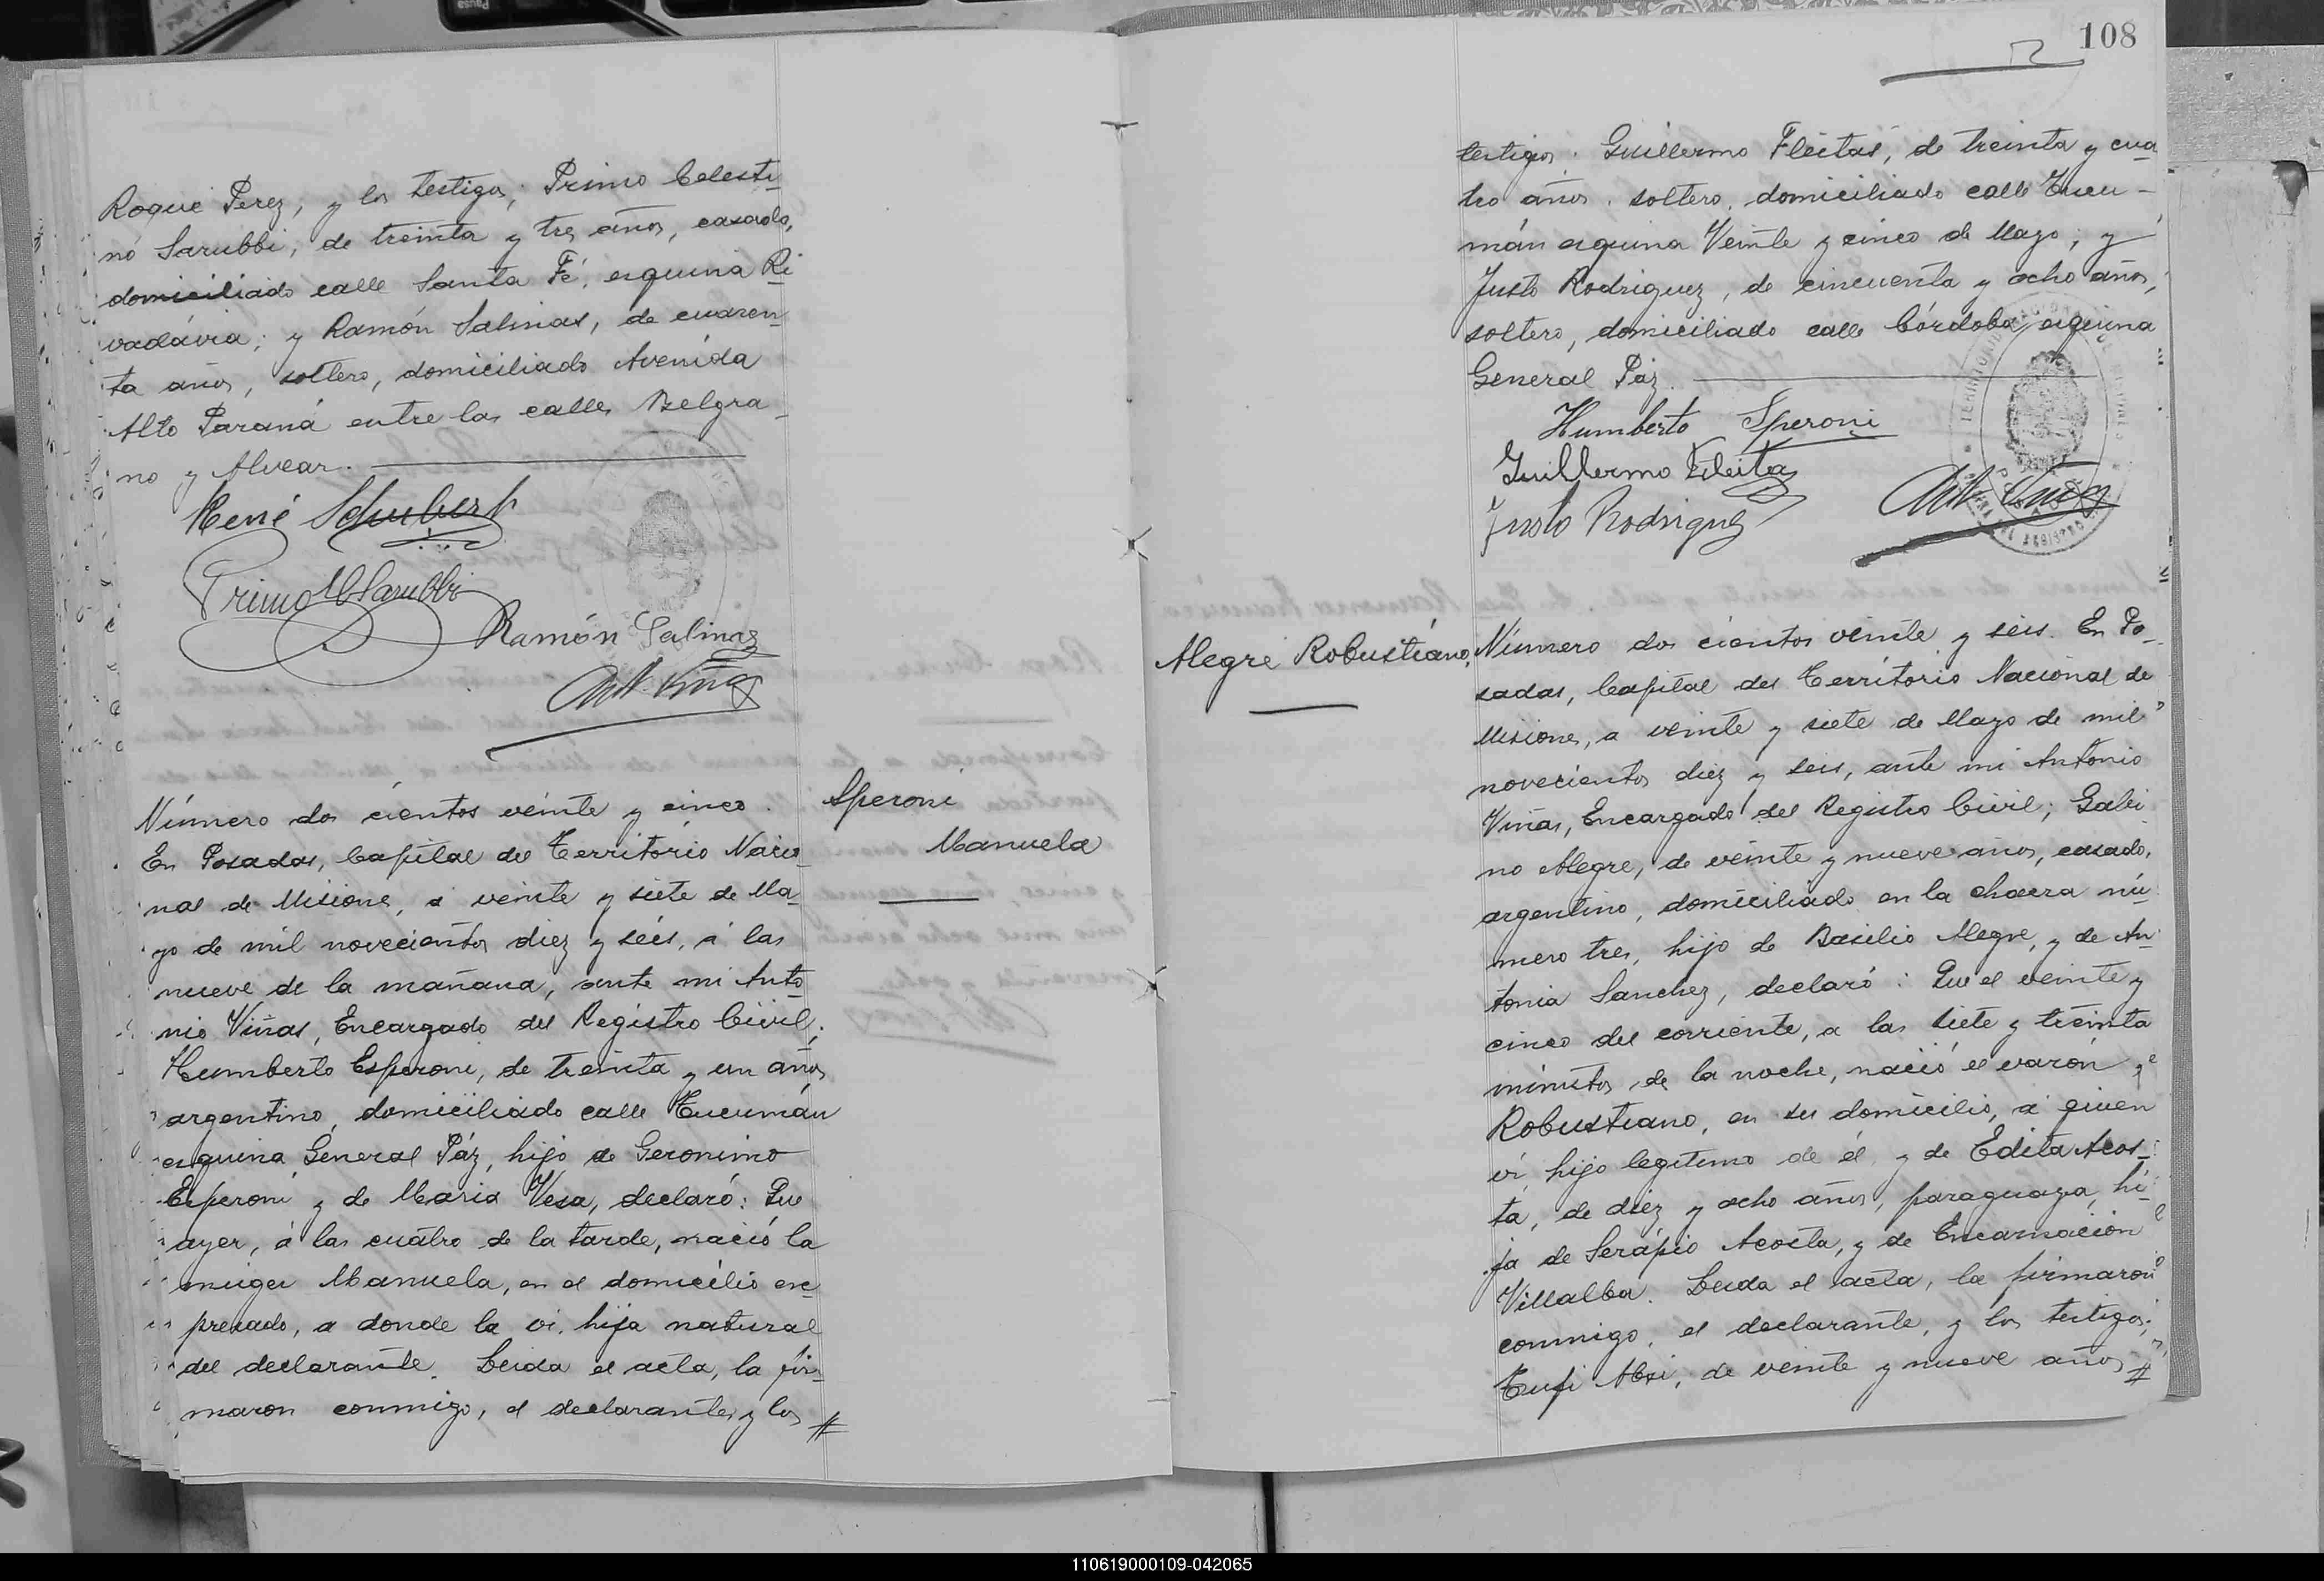 Roque Perez, y los testigos; Primo Celesti-
no Sarubbi, de treinta y tres años, casado,
domiciliado calle Santa Fé, esquina Ri-
vadávia; y Ramón Salinas, de cuaren-
ta años, soltero, domiciliado Avenida
Alto Paraná entre las calles Belgra-
no y Alvear.
René Schubert
Primo C Sarubbi
Ramón Salinas
Ant. Viñas
Número dos cientos veinte y cinco.
En Posadas, Capital del Territorio Nacio-
nal de Misiones, á veinte y siete de Ma-
yo de mil novecientos diez y séis, á las
nueve de la mañana, ante mi Anto-
nio Viñas, Encargado del Registro Civil;
Humberto Esperoni, de treinta y un años
argentino, domiciliado calle Tucumán
esquina General Páz, hijo de Geronimo
Esperoni y de Maria Vesa, declaró: Que
ayer, á las cuatro de la tarde, nació la
muger Manuela, en el domicilio ex-
presado, a donde la vi, hija natural
del declarante. Leida el acta, la fir-
maron conmigo, el declarante, y los #
Speroni
Manuela
108
testigos: Guillermo Fleitas, de treinta y cua-
tro años, soltero, domiciliado calle Tucu-
mán esquina Veinte y cinco de Mayo; y
Justo Rodriguez, de cincuenta y ocho años,
soltero, domiciliado calle Córdoba, esquina
General Páz.
Humberto Speroni
Guillermo Fleitas
Justo Rodriguez
Ant. Viñas
Alegre Robustiano,
Número dos cientos veinte y séis. En Po-
sadas, Capital del Territorio Nacional de
Misiones, a veinte y siete de Mayo de mil
novecientos diez y seis, ante mi Antonio
Viñas, Encargado del Registro Civil; Gabi-
no Alegre, de veinte y nueve años, casado,
argentino, domiciliado en la chacra nú-
mero tres, hijo de Basilio Alegre, y de An-
tonia Sanchez, declaró: Que el veinte y
cinco del corriente, a las siete y treinta
minutos de la noche, nació el varón
Robustiano, en su domicilio, á quien
ví, hijo legitimo de él, y de Edita Acos-
ta, de diez y ocho años, paraguaya, hi-
ja de Serápio Acosta, y de Encarnación
Villalba. Leida el acta, la firmaron
conmigo, el declarante, y los testigos:
Tufi Absi, de veinte y nueve años #
110619000109-042065